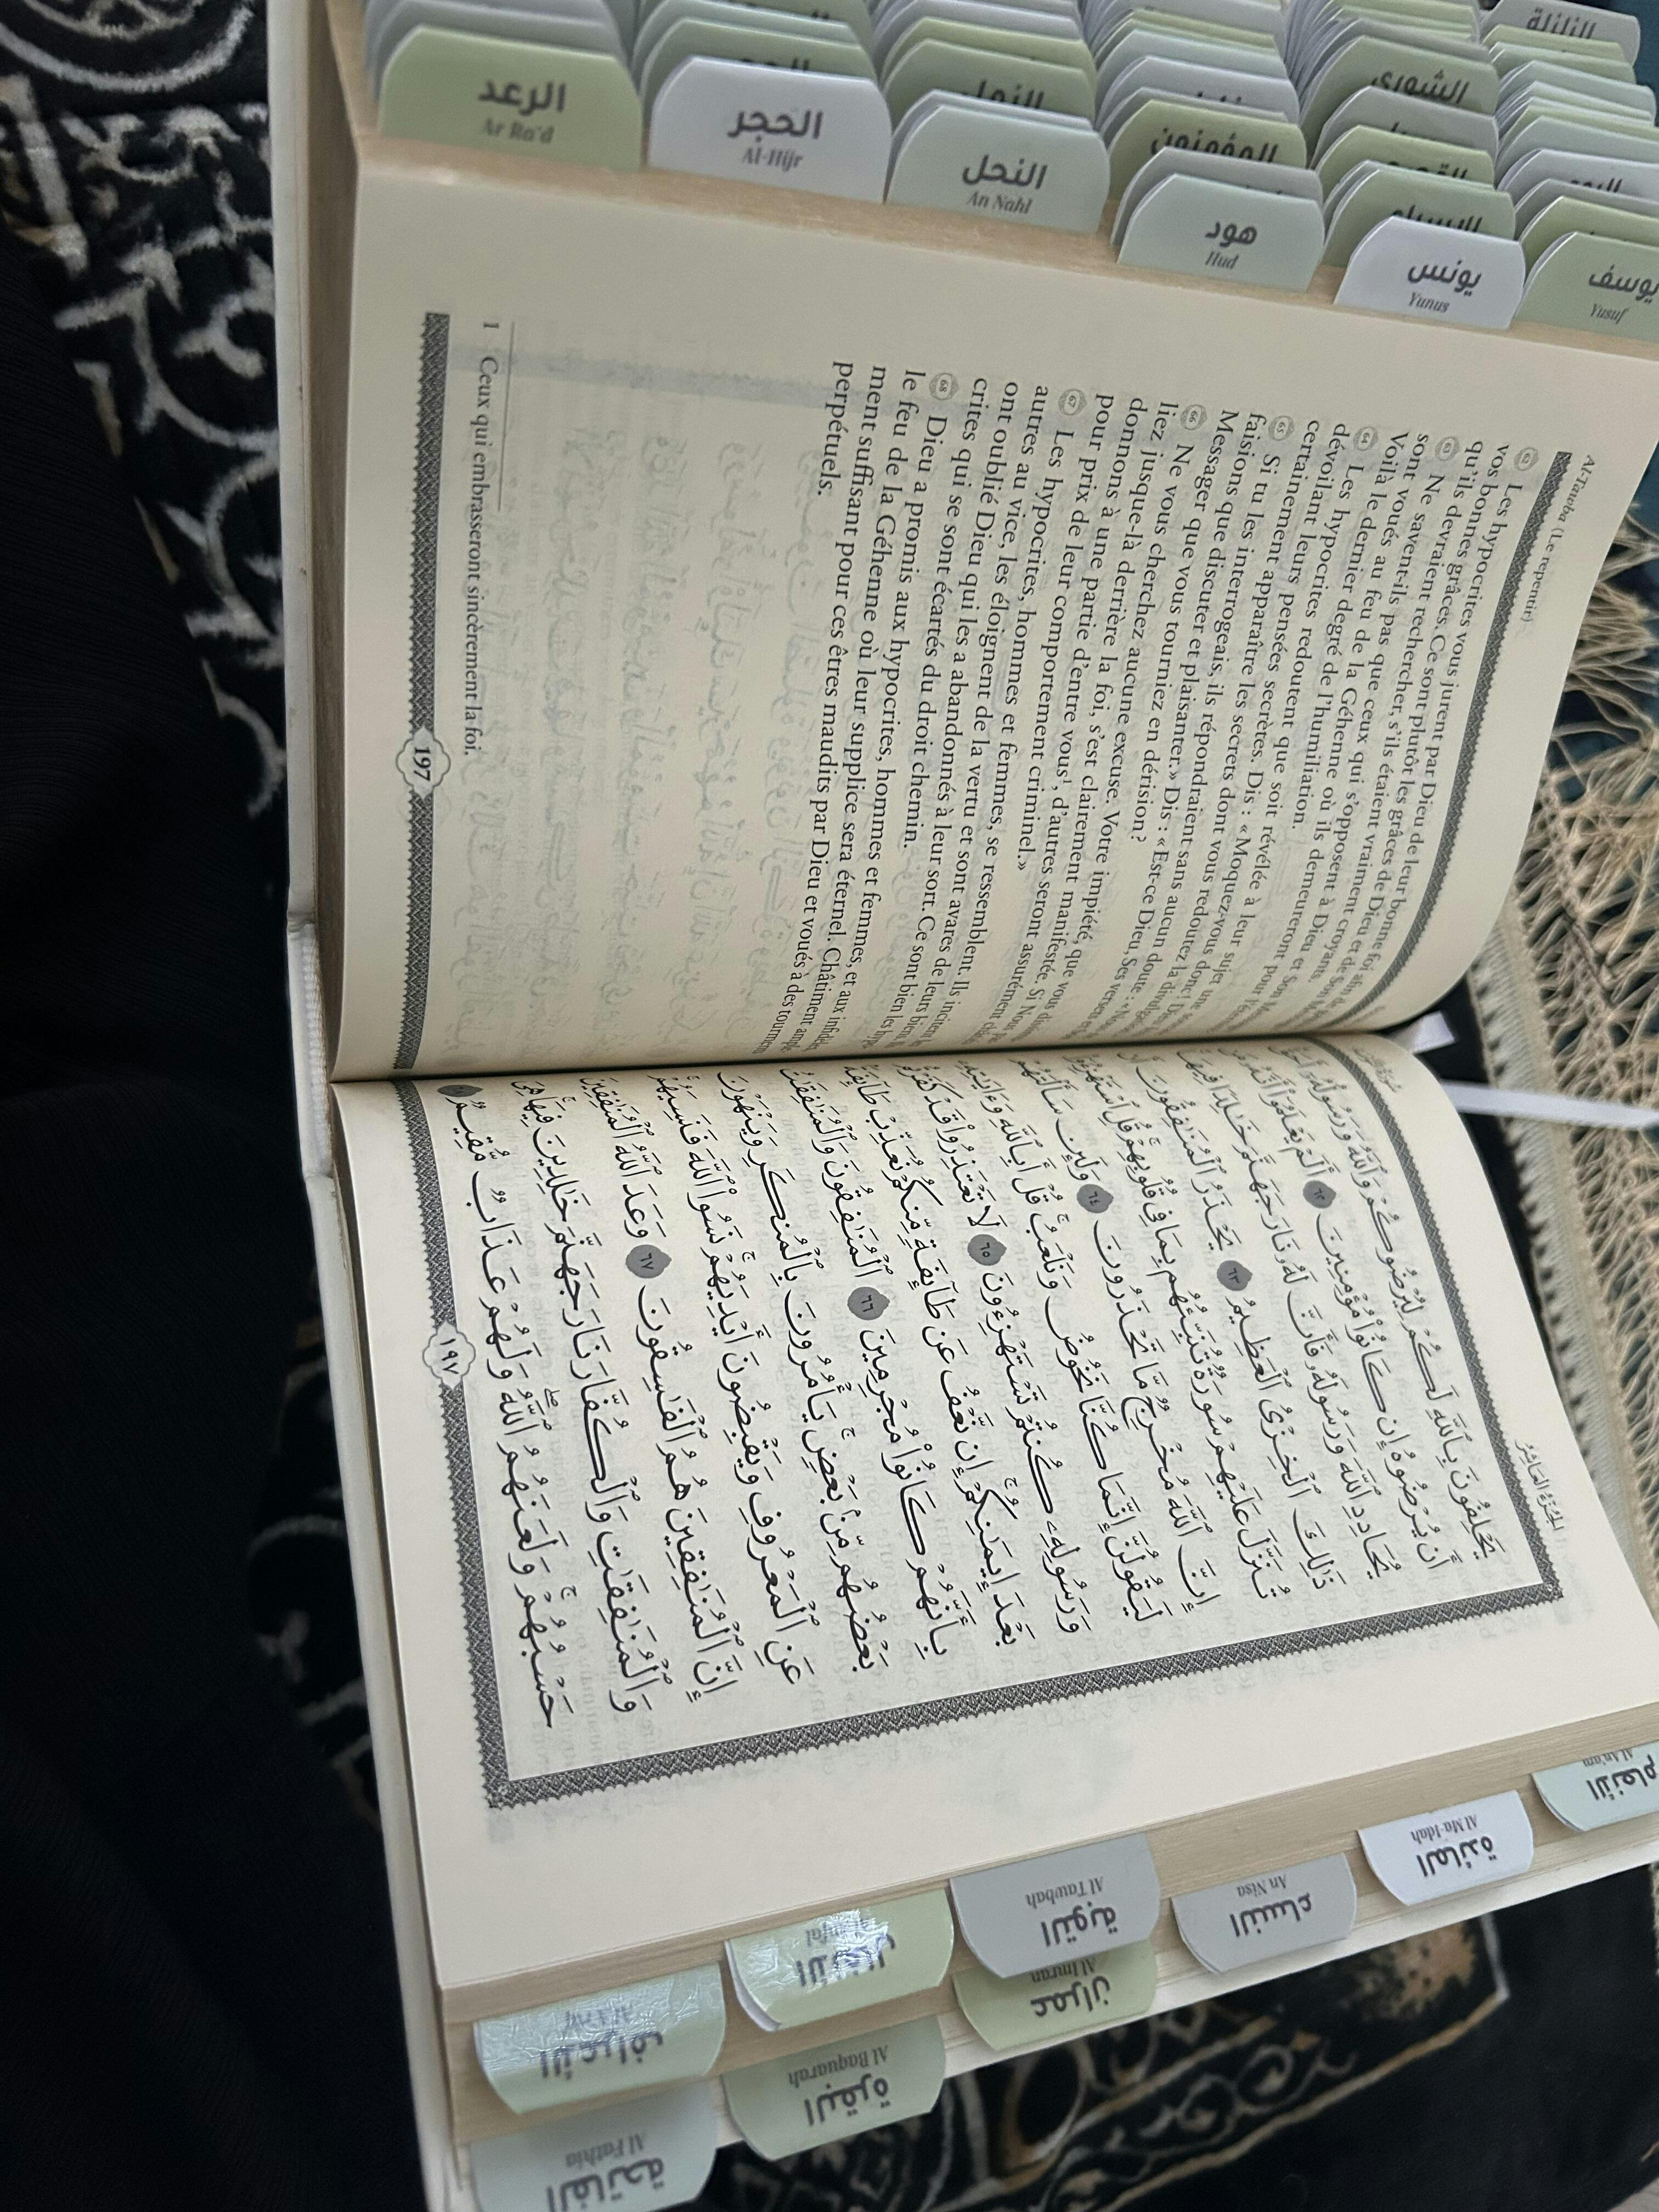 الرعد
Ar Ra'd
الحجر
Al-Hijr
النحل
An Nahl
هود
Hud
يونس
Yunus
يوسف
Yusuf
المؤمنون
الشورى
الزلزلة
At-Tawba (Le repentir)
62 Les hypocrites vous jurent par Dieu de leur bonne foi afin de
vos bonnes grâces. Ce sont plutôt les grâces de Dieu et de Son
qu'ils devraient rechercher, s'ils étaient vraiment croyants.
63 Ne savent-ils pas que ceux qui s'opposent à Dieu et à Son
sont voués au feu de la Géhenne où ils demeureront pour
Voilà le dernier degré de l'humiliation.
64 Les hypocrites redoutent que soit révélée à leur sujet une
dévoilant leurs pensées secrètes. Dis : « Moquez-vous donc !
certainement apparaître les secrets dont vous redoutez la
65 Si tu les interrogeais, ils répondraient sans aucun doute : « Nous
faisions que discuter et plaisanter. » Dis : « Est-ce Dieu, Ses versets et
Messager que vous tourniez en dérision ?
66 Ne vous cherchez aucune excuse. Votre impiété, que vous
liez jusque-là derrière la foi, s'est clairement manifestée. Si Nous
donnons à une partie d'entre vous1, d'autres seront assurément
pour prix de leur comportement criminel. »
67 Les hypocrites, hommes et femmes, se ressemblent. Ils incitent les
autres au vice, les éloignent de la vertu et sont avares de leurs biens.
ont oublié Dieu qui les a abandonnés à leur sort. Ce sont bien les hypo-
crites qui se sont écartés du droit chemin.
68 Dieu a promis aux hypocrites, hommes et femmes, et aux infidèles
le feu de la Géhenne où leur supplice sera éternel. Châtiment ample-
ment suffisant pour ces êtres maudits par Dieu et voués à des tourments
perpétuels.
1 Ceux qui embrasseront sincèrement la foi.
197
الجزء العاشر
يَحْلِفُونَ بِٱللَّهِ لَكُمْ لِيُرْضُوكُمْ وَٱللَّهُ وَرَسُولُهُۥٓ أَحَقُّ
أَن يُرْضُوهُ إِن كَانُوا۟ مُؤْمِنِينَ ٦٢ أَلَمْ يَعْلَمُوٓا۟ أَنَّهُۥ مَن
يُحَادِدِ ٱللَّهَ وَرَسُولَهُۥ فَأَنَّ لَهُۥ نَارَ جَهَنَّمَ خَٰلِدًا فِيهَا
ذَٰلِكَ ٱلْخِزْىُ ٱلْعَظِيمُ ٦٣ يَحْذَرُ ٱلْمُنَٰفِقُونَ أَن
تُنَزَّلَ عَلَيْهِمْ سُورَةٌ تُنَبِّئُهُم بِمَا فِى قُلُوبِهِمْ ۚ قُلِ ٱسْتَهْزِءُوٓا۟
إِنَّ ٱللَّهَ مُخْرِجٌ مَّا تَحْذَرُونَ ٦٤ وَلَئِن سَأَلْتَهُمْ
لَيَقُولُنَّ إِنَّمَا كُنَّا نَخُوضُ وَنَلْعَبُ ۚ قُلْ أَبِٱللَّهِ وَءَايَٰتِهِۦ
وَرَسُولِهِۦ كُنتُمْ تَسْتَهْزِءُونَ ٦٥ لَا تَعْتَذِرُوا۟ قَدْ كَفَرْتُم
بَعْدَ إِيمَٰنِكُمْ ۚ إِن نَّعْفُ عَن طَآئِفَةٍ مِّنكُمْ نُعَذِّبْ طَآئِفَةًۢ
بِأَنَّهُمْ كَانُوا۟ مُجْرِمِينَ ٦٦ ٱلْمُنَٰفِقُونَ وَٱلْمُنَٰفِقَٰتُ
بَعْضُهُم مِّنۢ بَعْضٍ ۚ يَأْمُرُونَ بِٱلْمُنكَرِ وَيَنْهَوْنَ
عَنِ ٱلْمَعْرُوفِ وَيَقْبِضُونَ أَيْدِيَهُمْ ۚ نَسُوا۟ ٱللَّهَ فَنَسِيَهُمْ ۗ
إِنَّ ٱلْمُنَٰفِقِينَ هُمُ ٱلْفَٰسِقُونَ ٦٧ وَعَدَ ٱللَّهُ ٱلْمُنَٰفِقِينَ
وَٱلْمُنَٰفِقَٰتِ وَٱلْكُفَّارَ نَارَ جَهَنَّمَ خَٰلِدِينَ فِيهَا ۚ هِىَ
حَسْبُهُمْ ۚ وَلَعَنَهُمُ ٱللَّهُ ۖ وَلَهُمْ عَذَابٌ مُّقِيمٌ
١٩٧
الأنعام
Al An'am
المائدة
Al Ma-Idah
النساء
An Nisa
التوبة
Al Tawbah
عمران
Al Imran
الأعراف
البقرة
Al Baqarah
الفاتحة
Al Fatihia